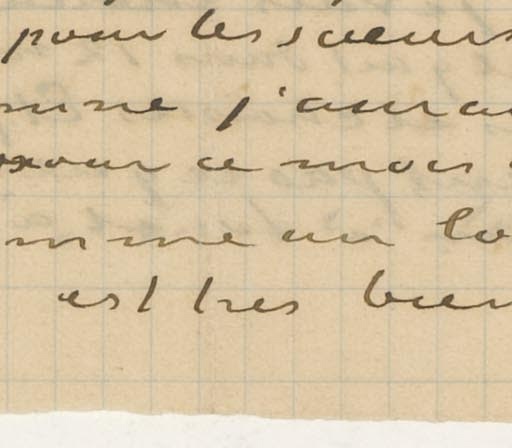 pour les soeurs
mme j'aura
pour ce mois
mme un lo
est tres bien